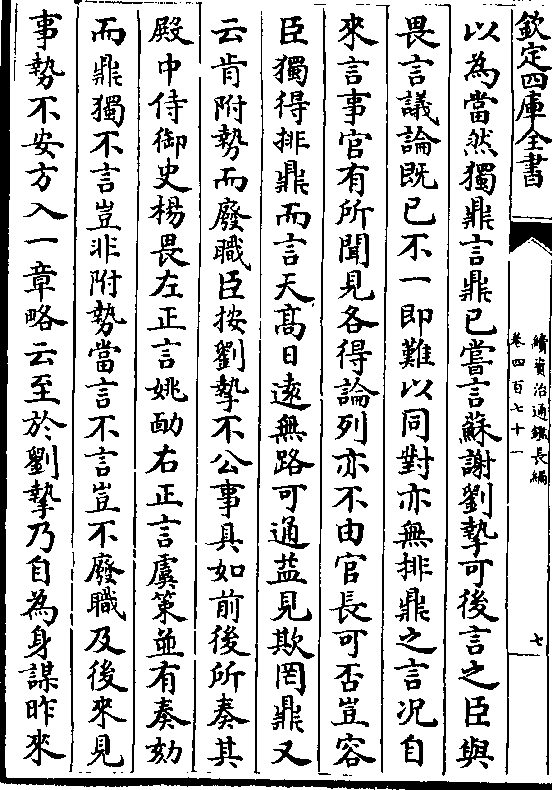 欽定四庫全書
續資治通鑑長編
卷四百七十一
七
以為當然獨鼎言鼎已嘗言蘇謝劉摯可後言之臣與
畏言議論既已不一即難以同對亦無排鼎之言况自
來言事官有所聞見各得論列亦不由官長可否豈容
臣獨得排鼎而言天髙日逺無路可通益見欺罔鼎又
云肯附勢而廢職臣按劉摯不公事具如前後所奏其
殿中侍御史楊畏左正言姚勔右正言虞策並有奏劾
而鼎獨不言豈非附勢當言不言豈不廢職及後來見
事勢不安方入一章略云至於劉摯乃自為身謀昨來